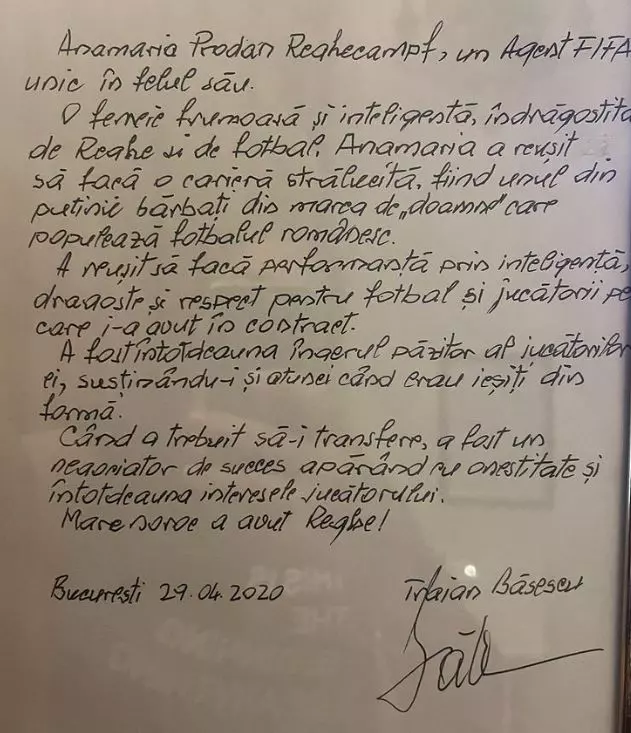 Anamaria Prodan Reghecampf, un Agent FIFA
unic în felul său.
O femeie frumoasă și inteligentă, îndrăgostita
de Reghe și de fotbal, Anamaria a reușit
să facă o carieră strălucită, fiind unul din
puținii bărbați din marea de „doamne" care
populează fotbalul românesc.
A reușit să facă performanță prin inteligență,
dragoste și respect pentru fotbal și jucătorii pe
care i-a avut în contract.
A fost întotdeauna îngerul păzitor al jucătorilor
ei, susținându-i și atunci când erau ieșiți din
formă.
Când a trebuit să-i transfere, a fost un
negociator de succes apărând cu onestitate și
întotdeauna interesele jucătorului.
Mare noroc a avut Reghe!
București 29.04.2020
Traian Băsescu